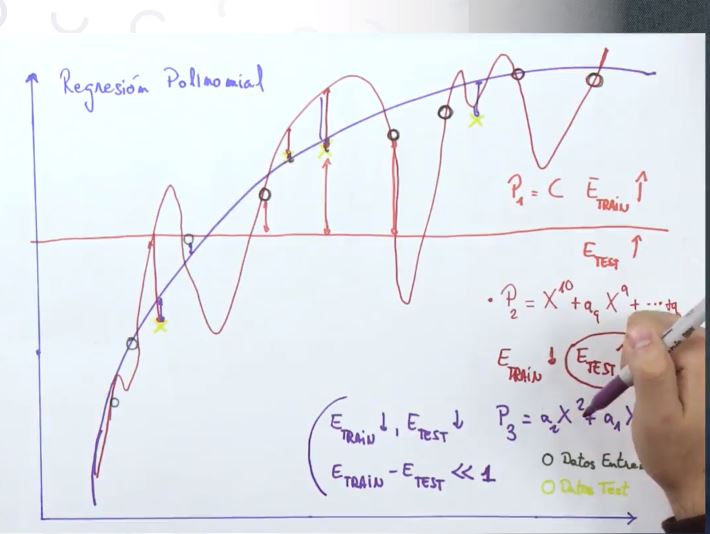 Regresión Polinomial
P₁ = C E̅_TRAiN ↑
E_TEST ↑
· P₂ = X¹⁰ + a₉ X⁹ + ...
E_TRAiN ↓ E_TEST
E_TRAiN ↓, E_TEST ↓
P₃ = a₂X² + a₁
E_TRAiN - E_TEST << 1
O Datos
O Datos Test